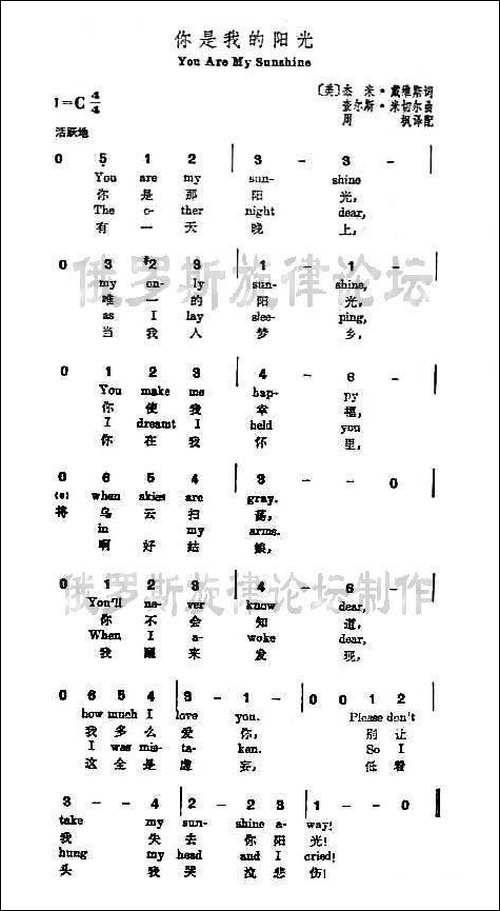 你是我的阳光
You Are My Sunshine
1=C 4/4
〔英〕杰米·戴维斯词
查尔斯·米切尔曲
周枫译配
活跃地
0 5 1 2 | 3 - 3 - |
You are my sun- shine
你是那阳光,
The o- ther night dear,
有一天晚上,
0 3 2 3 | 1 - 1 - |
my on- ly sun- shine,
唯一的阳光,
as I lay slee- ping,
当我入梦乡,
俄罗斯旋律论坛
0 1 2 3 | 4 - 6 - |
You make me hap- py
你使我幸福,
I dreamt I held you
你在我怀里,
0 6 5 4 | 3 - - 0 |
(6) when skies are gray.
将乌云扫荡,
in my arms.
啊好姑娘,
0 1 2 3 | 4 - 6 - |
You'll ne- ver know dear,
你不会知道,
When I a- woke dear,
我醒来发现,
俄罗斯旋律论坛制作
0 6 5 4 | 3 - 1 - | 0 0 1 2 |
how much I love you. Please don't
我多么爱你, 别让
I was mis- ta- ken. So I
这全是虚妄, 低着
3 - - 4 | 2 - 2 3 | 1 - - 0 |
take my sun- shine a- way!
我失去你阳光!
hung my head and I cried!
头我哭泣悲伤!